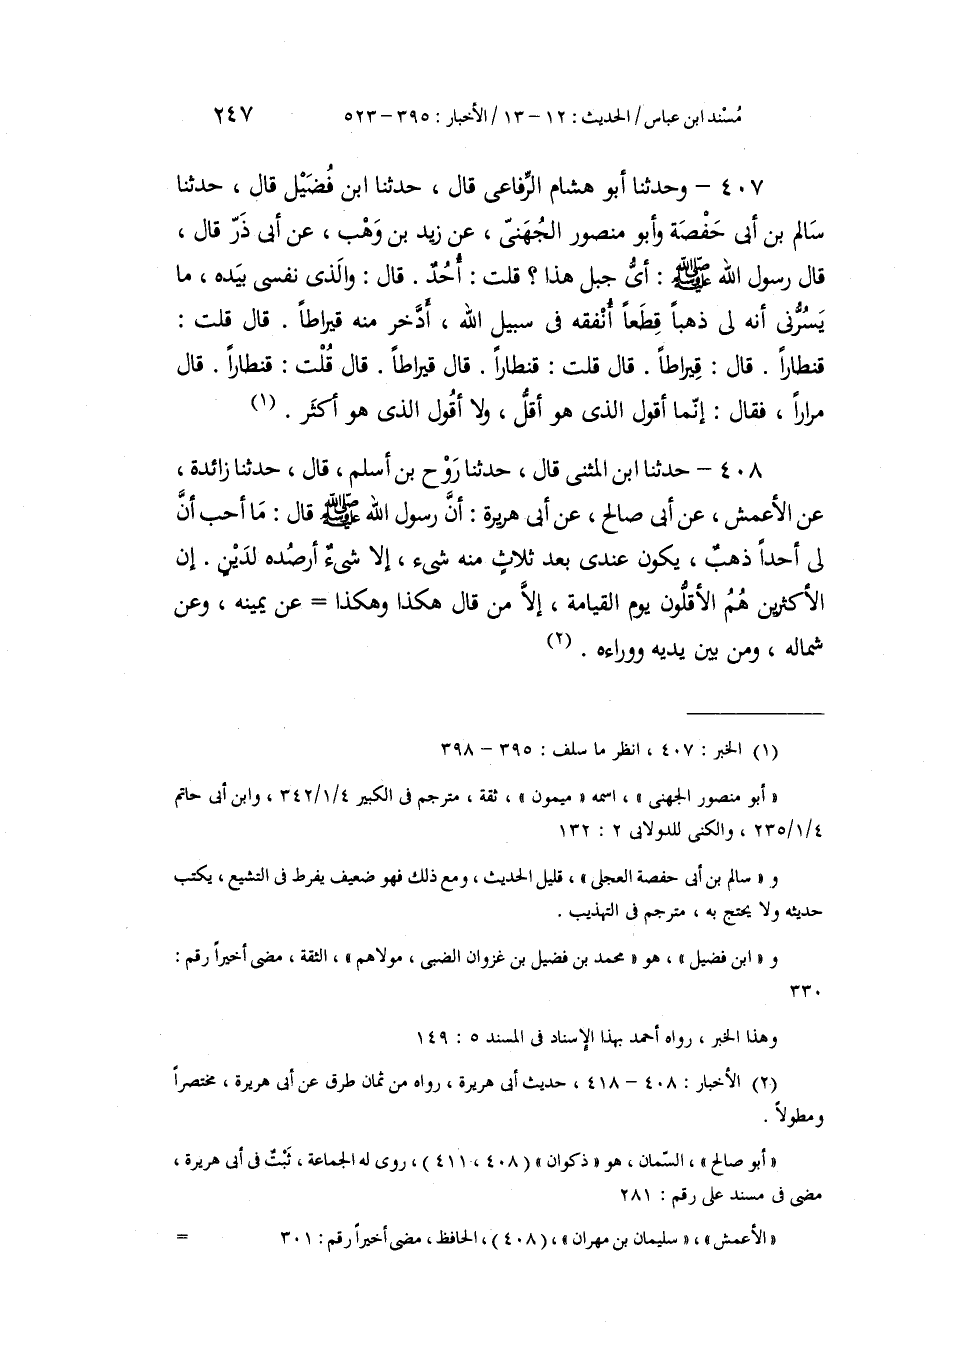 مُسْند ابن عباس / الحديث : ١٢ – ١٣ / الأخبار : ٣٩٥ – ٥٢٣ ٢٤٧
٤٠٧ – وحدثنا أبو هشام الرِّفاعى قال ، حدثنا ابن فُضَيْل قال ، حدثنا
سَالم بن أبى حَفْصَة وأبو منصور الجُهَنىّ ، عن زيد بن وَهْب ، عن أبى ذَرّ قال ،
قال رسول الله ﷺ : أىُّ جبل هذا ؟ قلت : أُحُدٌ . قال : والَذى نفسى بيَده ، ما
يَسرُّنى أنه لى ذهباً قِطَعاً أُنْفقه فى سبيل الله ، أَدَّخر منه قيراطاً . قال قلت :
قنطاراً . قال : قِيراطاً . قال قلت : قنطاراً . قال قيراطاً . قال قُلْت : قنطاراً . قال
مراراً ، فقال : إنّما أقول الذى هو أقلُّ ، ولا أقُول الذى هو أكثَر . (١)
٤٠٨ – حدثنا ابن المثنى قال ، حدثنا رَوْح بن أسلم ، قال ، حدثنا زائدة ،
عن الأعمش ، عن أبى صالح ، عن أبى هريرة : أنَّ رسول الله ﷺ قال : مَا أحب أنَّ
لى أحداً ذهبٌ ، يكون عندى بعد ثلاثٍ منه شىء ، إلا شىءٌ أرصُده لدَيْنٍ . إن
الأكثرين هُمُ الأقلُّون يوم القيامة ، إلاَّ من قال هكذا وهكذا = عن يمينه ، وعن
شماله ، ومن بين يديه ووراءه . (٢)
(١) الخبر : ٤٠٧ ، انظر ما سلف : ٣٩٥ – ٣٩٨
« أبو منصور الجهنى » ، اسمه « ميمون » ، ثقة ، مترجم فى الكبير ٣٤٢/١/٤ ، وابن أبى حاتم
٢٣٥/١/٤ ، والكنى للدولابى ٢ : ١٣٢
و « سالم بن أبى حفصة العجلى » ، قليل الحديث ، ومع ذلك فهو ضعيف يفرط فى التشيع ، يكتب
حديثه ولا يحتج به ، مترجم فى التهذيب .
و « ابن فضيل » ، هو « محمد بن فضيل بن غزوان الضبى ، مولاهم » ، الثقة ، مضى أخيراً رقم :
٣٣٠
وهذا الخبر ، رواه أحمد بهذا الإسناد فى المسند ٥ : ١٤٩
(٢) الأخبار : ٤٠٨ – ٤١٨ ، حديث أبى هريرة ، رواه من ثمان طرق عن أبى هريرة ، مختصراً
ومطولاً .
« أبو صالح » ، السّمان ، هو « ذكوان » ( ٤٠٨ ، ٤١١ ) ، روى له الجماعة ، ثَبْتٌ فى أبى هريرة ،
مضى فى مسند على رقم : ٢٨١
« الأعمش » ، « سليمان بن مهران » ، ( ٤٠٨ ) ، الحافظ ، مضى أخيراً رقم : ٣٠١ =